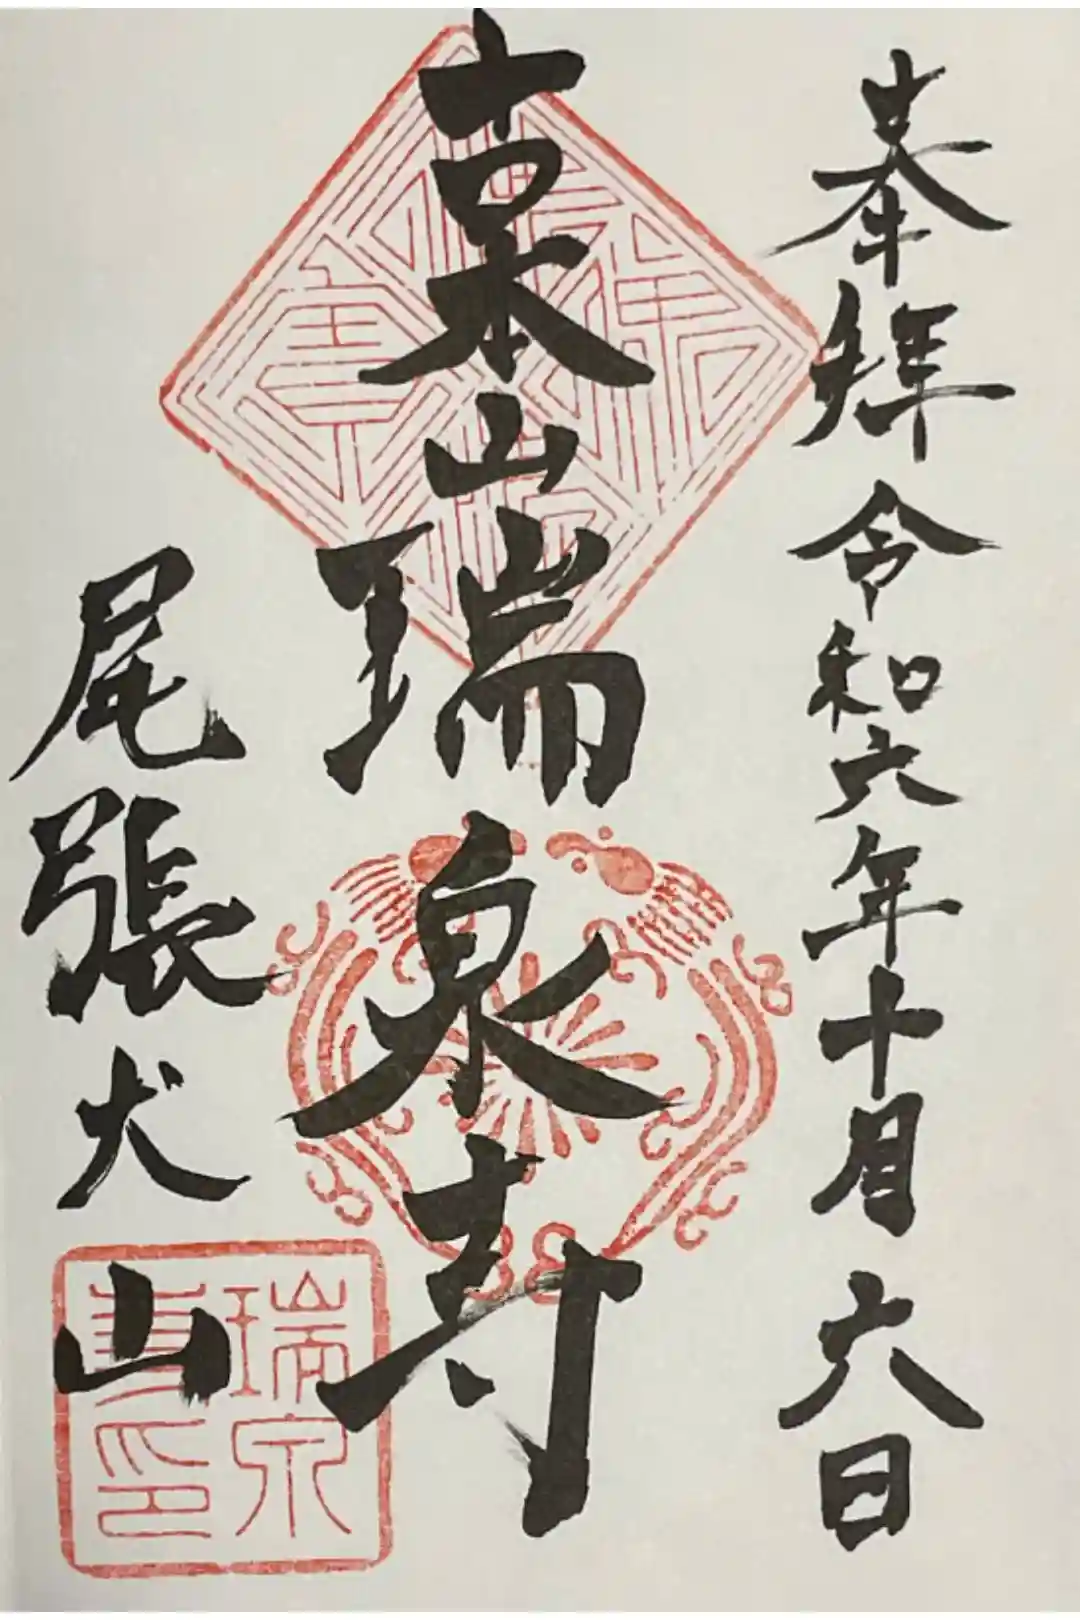 奉拝 令和六年十月六日
東山瑞泉寺
尾張犬山
瑞泉
寺印